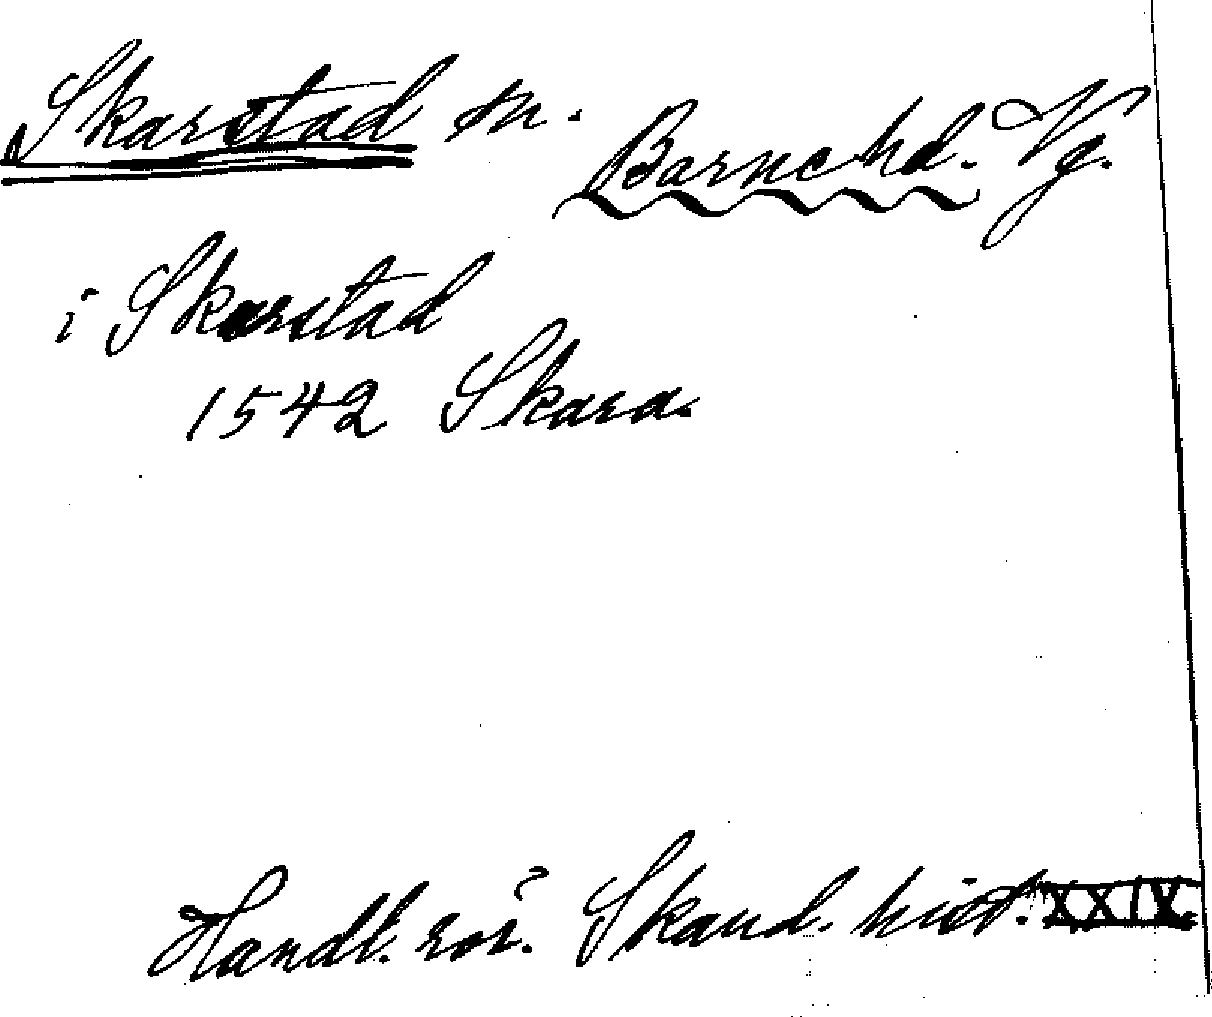 Skarstad sn.
Barne hd. Vg.
i Skarstad
1542 Skara.
Handl. rör. Skand. hist. XXIX.